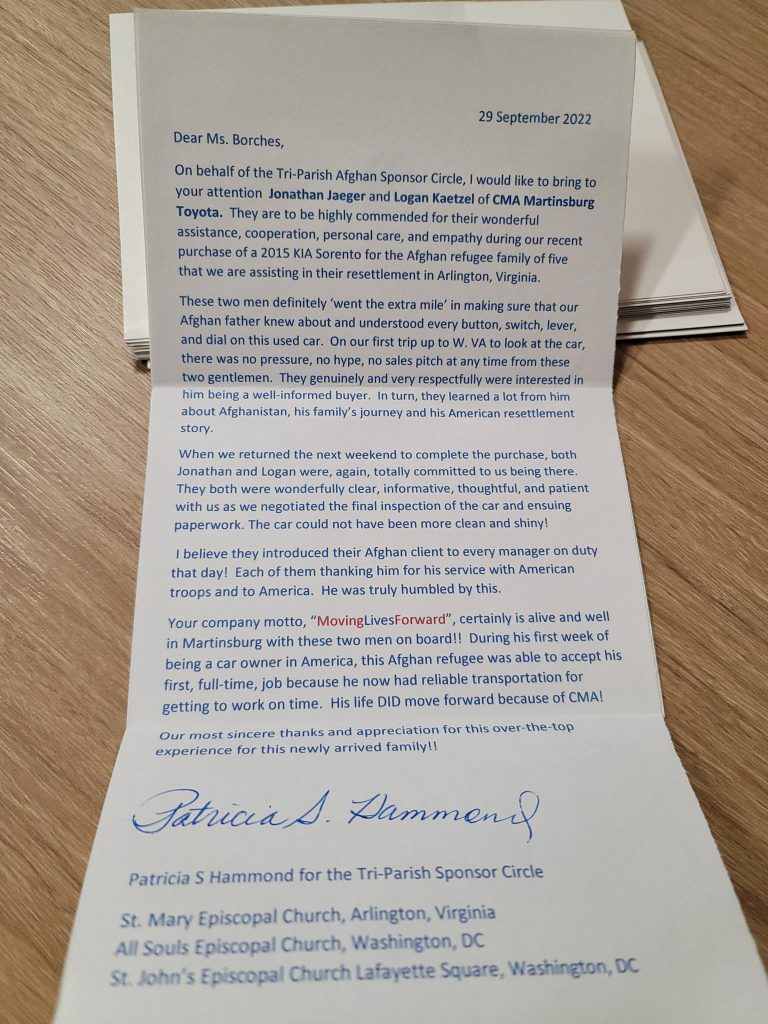 29 September 2022
Dear Ms. Borches,
On behalf of the Tri-Parish Afghan Sponsor Circle, I would like to bring to
your attention Jonathan Jaeger and Logan Kaetzel of CMA Martinsburg
Toyota. They are to be highly commended for their wonderful
assistance, cooperation, personal care, and empathy during our recent
purchase of a 2015 KIA Sorento for the Afghan refugee family of five
that we are assisting in their resettlement in Arlington, Virginia.
These two men definitely ‘went the extra mile’ in making sure that our
Afghan father knew about and understood every button, switch, lever,
and dial on this used car. On our first trip up to W. VA to look at the car,
there was no pressure, no hype, no sales pitch at any time from these
two gentlemen. They genuinely and very respectfully were interested in
him being a well-informed buyer. In turn, they learned a lot from him
about Afghanistan, his family’s journey and his American resettlement
story.
When we returned the next weekend to complete the purchase, both
Jonathan and Logan were, again, totally committed to us being there.
They both were wonderfully clear, informative, thoughtful, and patient
with us as we negotiated the final inspection of the car and ensuing
paperwork. The car could not have been more clean and shiny!
I believe they introduced their Afghan client to every manager on duty
that day! Each of them thanking him for his service with American
troops and to America. He was truly humbled by this.
Your company motto, “MovingLivesForward”, certainly is alive and well
in Martinsburg with these two men on board!! During his first week of
being a car owner in America, this Afghan refugee was able to accept his
first, full-time, job because he now had reliable transportation for
getting to work on time. His life DID move forward because of CMA!
Our most sincere thanks and appreciation for this over-the-top
experience for this newly arrived family!!
Patricia S. Hammond
Patricia S Hammond for the Tri-Parish Sponsor Circle
St. Mary Episcopal Church, Arlington, Virginia
All Souls Episcopal Church, Washington, DC
St. John’s Episcopal Church Lafayette Square, Washington, DC